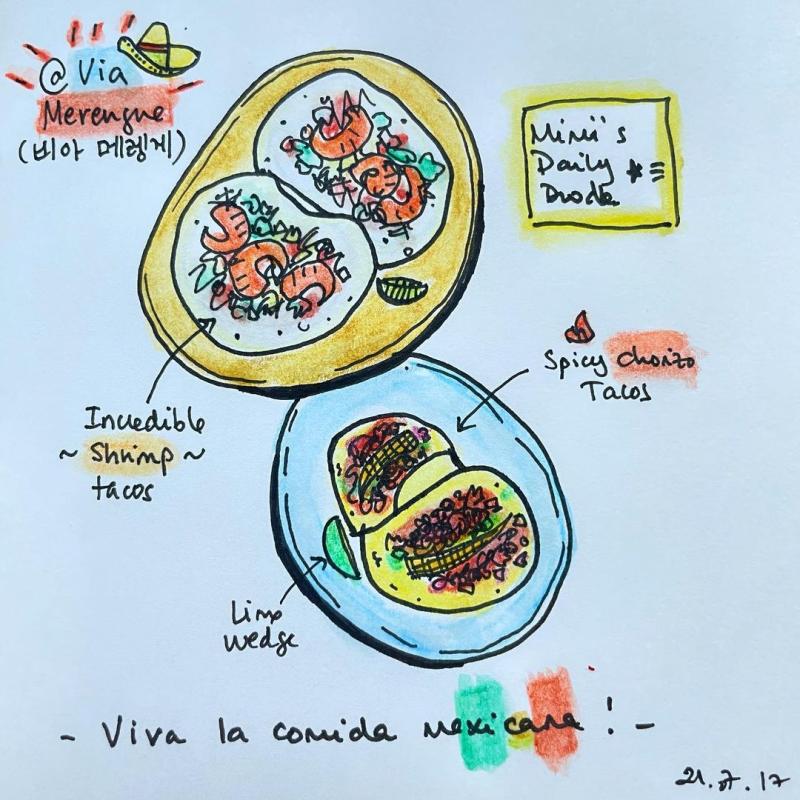 @ Via
Merengue
(비아 메렝게)
Mimi's
Daily
Doodle
Spicy chorizo
Tacos
Incredible
~ Shrimp ~
tacos
Lime
wedge
- Viva la comida mexicana ! -
21.7.17